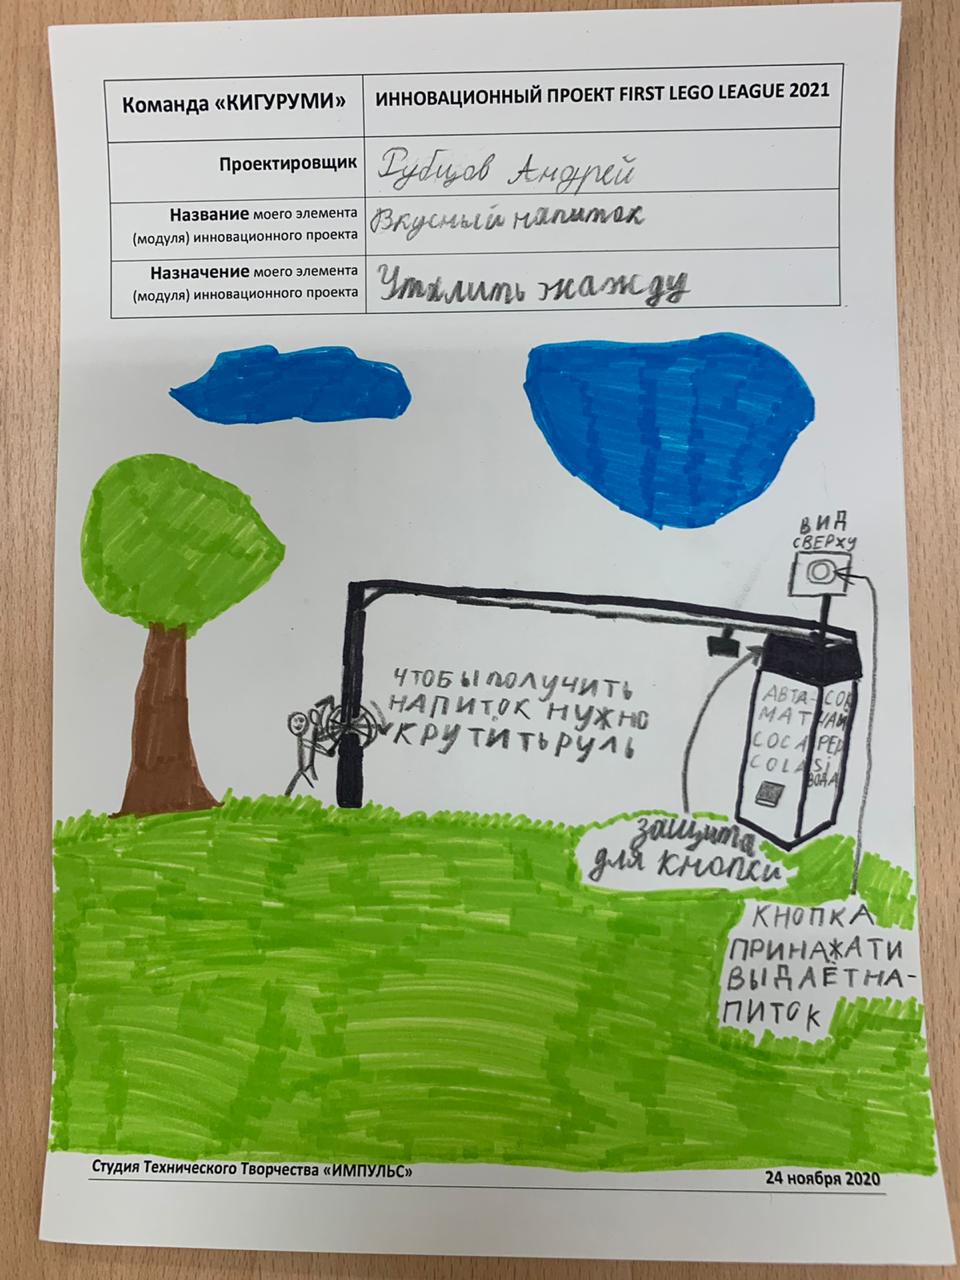 Команда «КИГУРУМИ»
ИННОВАЦИОННЫЙ ПРОЕКТ FIRST LEGO LEAGUE 2021
Проектировщик
Рубцов Андрей
Название моего элемента
(модуля) инновационного проекта
Вкусный напиток
Назначение моего элемента
(модуля) инновационного проекта
Утялить жажду
ВИД
СВЕРХУ
ЧТОБЫ ПОЛУЧИТЬ
НАПИТОК НУЖНО
КРУТИТЬ РУЛЬ
АВТА-
МАТ
COCA
COLA
СОК
ЧАЙ
PEP
SI
ВОДА
защита
для кнопки
КНОПКА
ПРИ НАЖАТИ
ВЫДАЁТ НА-
ПИТОК
Студия Технического Творчества «ИМПУЛЬС»
24 ноября 2020